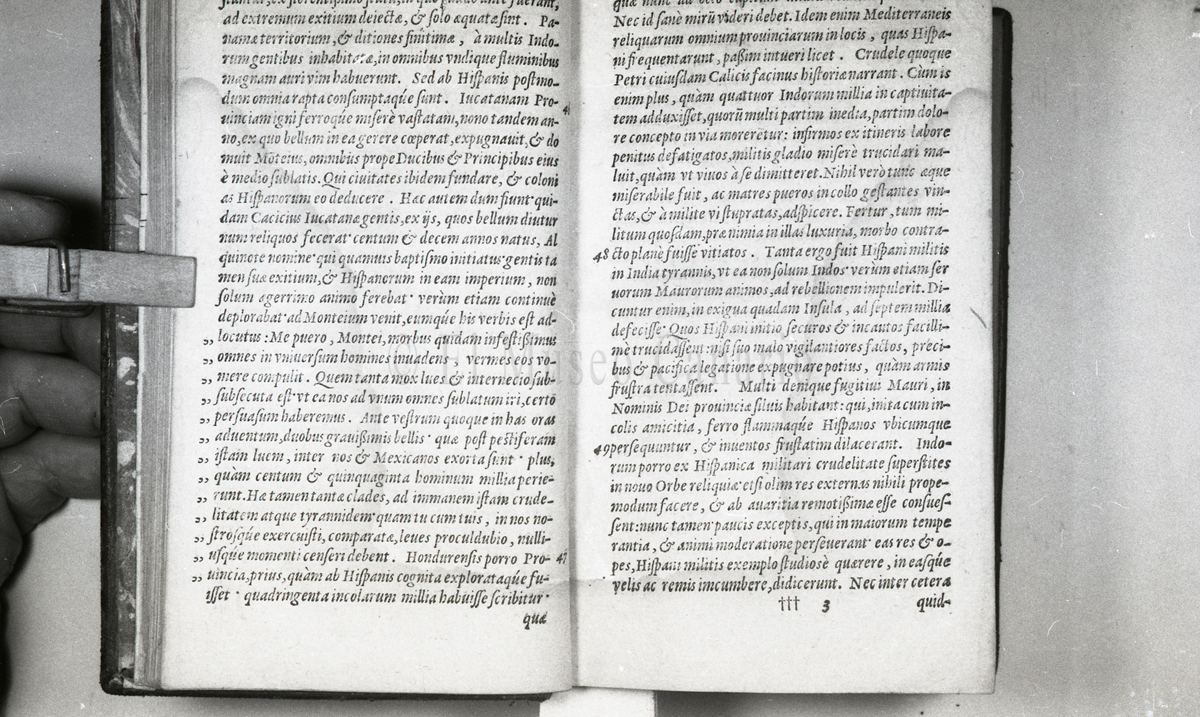 ad extremum exitium deiectæ, & solo æquatæ sint. Pa-
namæ territorium, & ditiones finitimæ, à multis Indo-
rum gentibus inhabitatæ, in omnibus vndique fluminibus
magnam auri vim habuerunt. Sed ab Hispanis postmo-
dum omnia rapta consumptaqúe sunt. Iucatanam Pro-
uinciam igni ferroqúe miserè vastatam, nono tandem an-
no, ex quo bellum in ea gerere cœperat, expugnauit, & do
muit Mōteius, omnibus prope Ducibus & Principibus eius
è medio sublatis. Qui ciuitates ibidem fundare, & coloni
as Hispanorum eo deducere. Hæc autem dum fiunt qui-
dam Cacicius Iucatanæ gentis, ex ijs, quos bellum diutur
num reliquos fecerat centum & decem annos natus, Al
quinote nomine qui quamuis baptismo initiatus gentis ta
men suæ exitium, & Hispanorum in eam imperium, non
solum ægerrimo animo ferebat verùm etiam continuè
deplorabat ad Monteium venit, eumqúe his verbis est ad-
,, locutus: Me puero, Montei, morbus quidam infestißimus
,, omnes in vniuersum homines inuadens, vermes eos vo-
,, mere compulit. Quem tanta mox lues & internecio sub-
,, subsecuta est vt ea nos ad vnum omnes sublatum iri, certò
,, persuasum haberemus. Ante vestrum quoque in has oras
,, aduentum, duobus grauißimis bellis quæ post pestiferam
,, istam luem, inter nos & Mexicanos exorta sunt plus,
,, quàm centum & quinquaginta hominum millia perie-
,, runt. Hæ tamen tantæ clades, ad immanem istam crude-
,, litatem atque tyrannidem quam tu cum tuis, in nos no-
,, strosqúe exercuisti, comparatæ, leues proculdubio, nulli-
,, usqúe momenti censeri debent. Hondurensis porro Pro- 47
,, uincia, prius, quàm ab Hispanis cognita explorataqúe fu-
isset quadringenta incolarum millia habuisse scribitur
quæ
Nec id sanè mirū videri debet. Idem enim Mediterraneis
reliquarum omnium prouinciarum in locis, quas Hispa-
ni frequentarunt, paßim intueri licet. Crudele quoque
Petri cuiusdam Calicis facinus historiæ narrant. Cum is
enim plus, quàm quattuor Indorum millia in captiuita-
tem adduxisset, quorū multi partim inedia, partim dolo-
re concepto in via morerētur: infirmos ex itineris labore
penitus defatigatos, militis gladio miserè trucidari ma-
luit, quàm vt viuos à se dimitteret. Nihil verò tunc æque
miserabile fuit, ac matres pueros in collo gestantes vin-
ctas, & à milite vi stupratas, adspicere. Fertur, tum mi-
litum quosdam, præ nimia in illas luxuria, morbo contra-
48 cto planè fuisse vitiatos. Tanta ergo fuit Hispani militis
in India tyrannis, vt ea non solum Indos verùm etiam ser
uorum Maurorum animos, ad rebellionem impulerit. Di-
cuntur enim, in exigua quadam Insula, ad septem millia
defecisse Quos Hispani initio securos & incautos facilli-
mè trucidassent: nisi suo malo vigilantiores factos, preci-
bus & pacifica legatione expugnare potius, quàm armis
frustra tentassent. Multi denique fugitiui Mauri, in
Nominis Dei prouinciæ siluis habitant: qui, inita cum in-
colis amicitia, ferro flammaqúe Hispanos vbicumque
49 persequuntur, & inuentos frustatim dilacerant. Indo-
rum porro ex Hispanica militari crudelitate superstites
in nouo Orbe reliquiæ etsi olim res externas nihili prope-
modum facere, & ab auaritia remotißimæ esse consues-
sent: nunc tamen paucis exceptis, qui in maiorum tempe
rantia, & animi moderatione perseuerant eas res & o-
pes, Hispani militis exemplo studiosè quærere, in easqúe
velis ac remis imcumbere, didicerunt. Nec inter cetera
††† 3 quid-